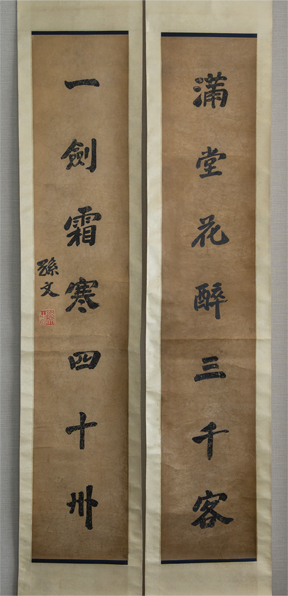 滿堂花醉三千客
一劍霜寒四十州
孫文